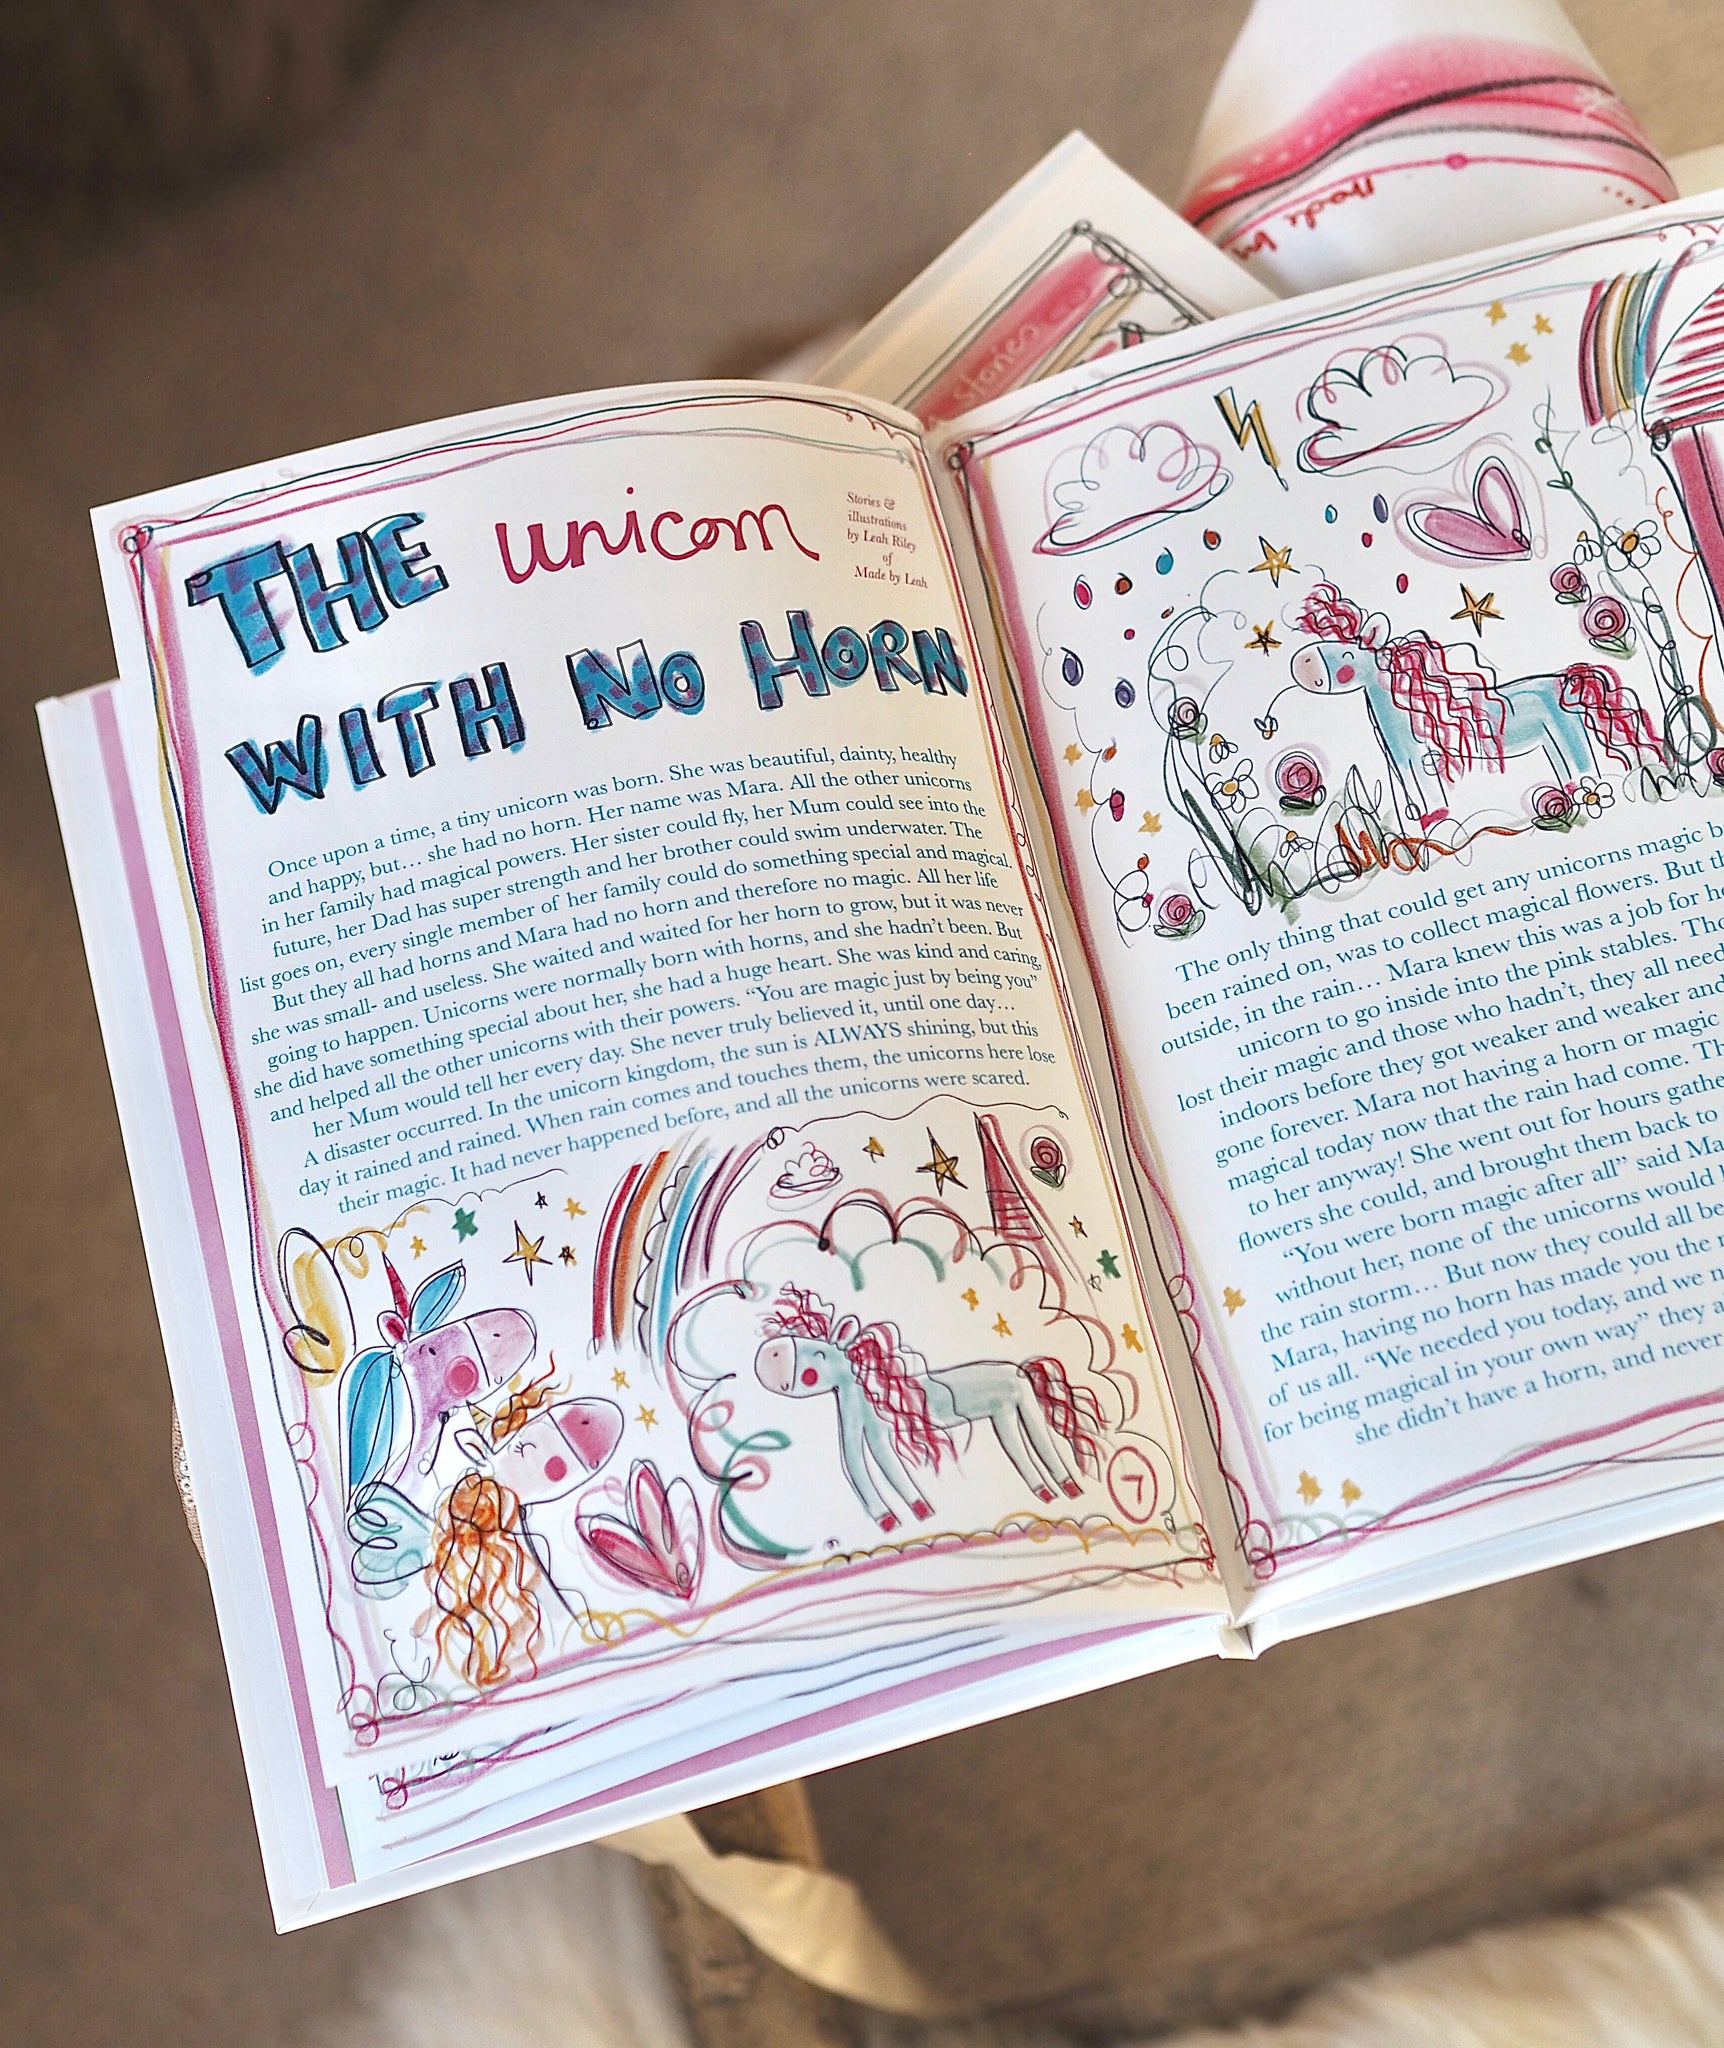 THE unicorn
WITH NO HORN
Stories &
illustrations
by Leah Riley
of
Made by Leah
Once upon a time, a tiny unicorn was born. She was beautiful, dainty, healthy
and happy, but... she had no horn. Her name was Mara. All the other unicorns
in her family had magical powers. Her sister could fly, her Mum could see into the
future, her Dad has super strength and her brother could swim underwater. The
list goes on, every single member of her family could do something special and magical.
But they all had horns and Mara had no horn and therefore no magic. All her life
she was small- and useless. She waited and waited for her horn to grow, but it was never
going to happen. Unicorns were normally born with horns, and she hadn't been. But
she did have something special about her, she had a huge heart. She was kind and caring,
and helped all the other unicorns with their powers. "You are magic just by being you"
her Mum would tell her every day. She never truly believed it, until one day...
A disaster occurred. In the unicorn kingdom, the sun is ALWAYS shining, but this
day it rained and rained. When rain comes and touches them, the unicorns here lose
their magic. It had never happened before, and all the unicorns were scared.
7
The only thing that could get any unicorns magic
been rained on, was to collect magical flowers. But
outside, in the rain... Mara knew this was a job for
unicorn to go inside into the pink stables.
lost their magic and those who hadn't, they all need
indoors before they got weaker and weaker and
gone forever. Mara not having a horn or magic
magical today now that the rain had come.
to her anyway! She went out for hours
flowers she could, and brought them back to
"You were born magic after all" said
without her, none of the unicorns would
the rain storm... But now they could all
Mara, having no horn has made you the
of us all. "We needed you today, and we
for being magical in your own way" they
she didn't have a horn, and never
stories
made by